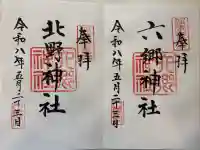 奉拝
六郷神社
令和八年五月二十三日
奉拝
北野神社
令和八年五月二十三日